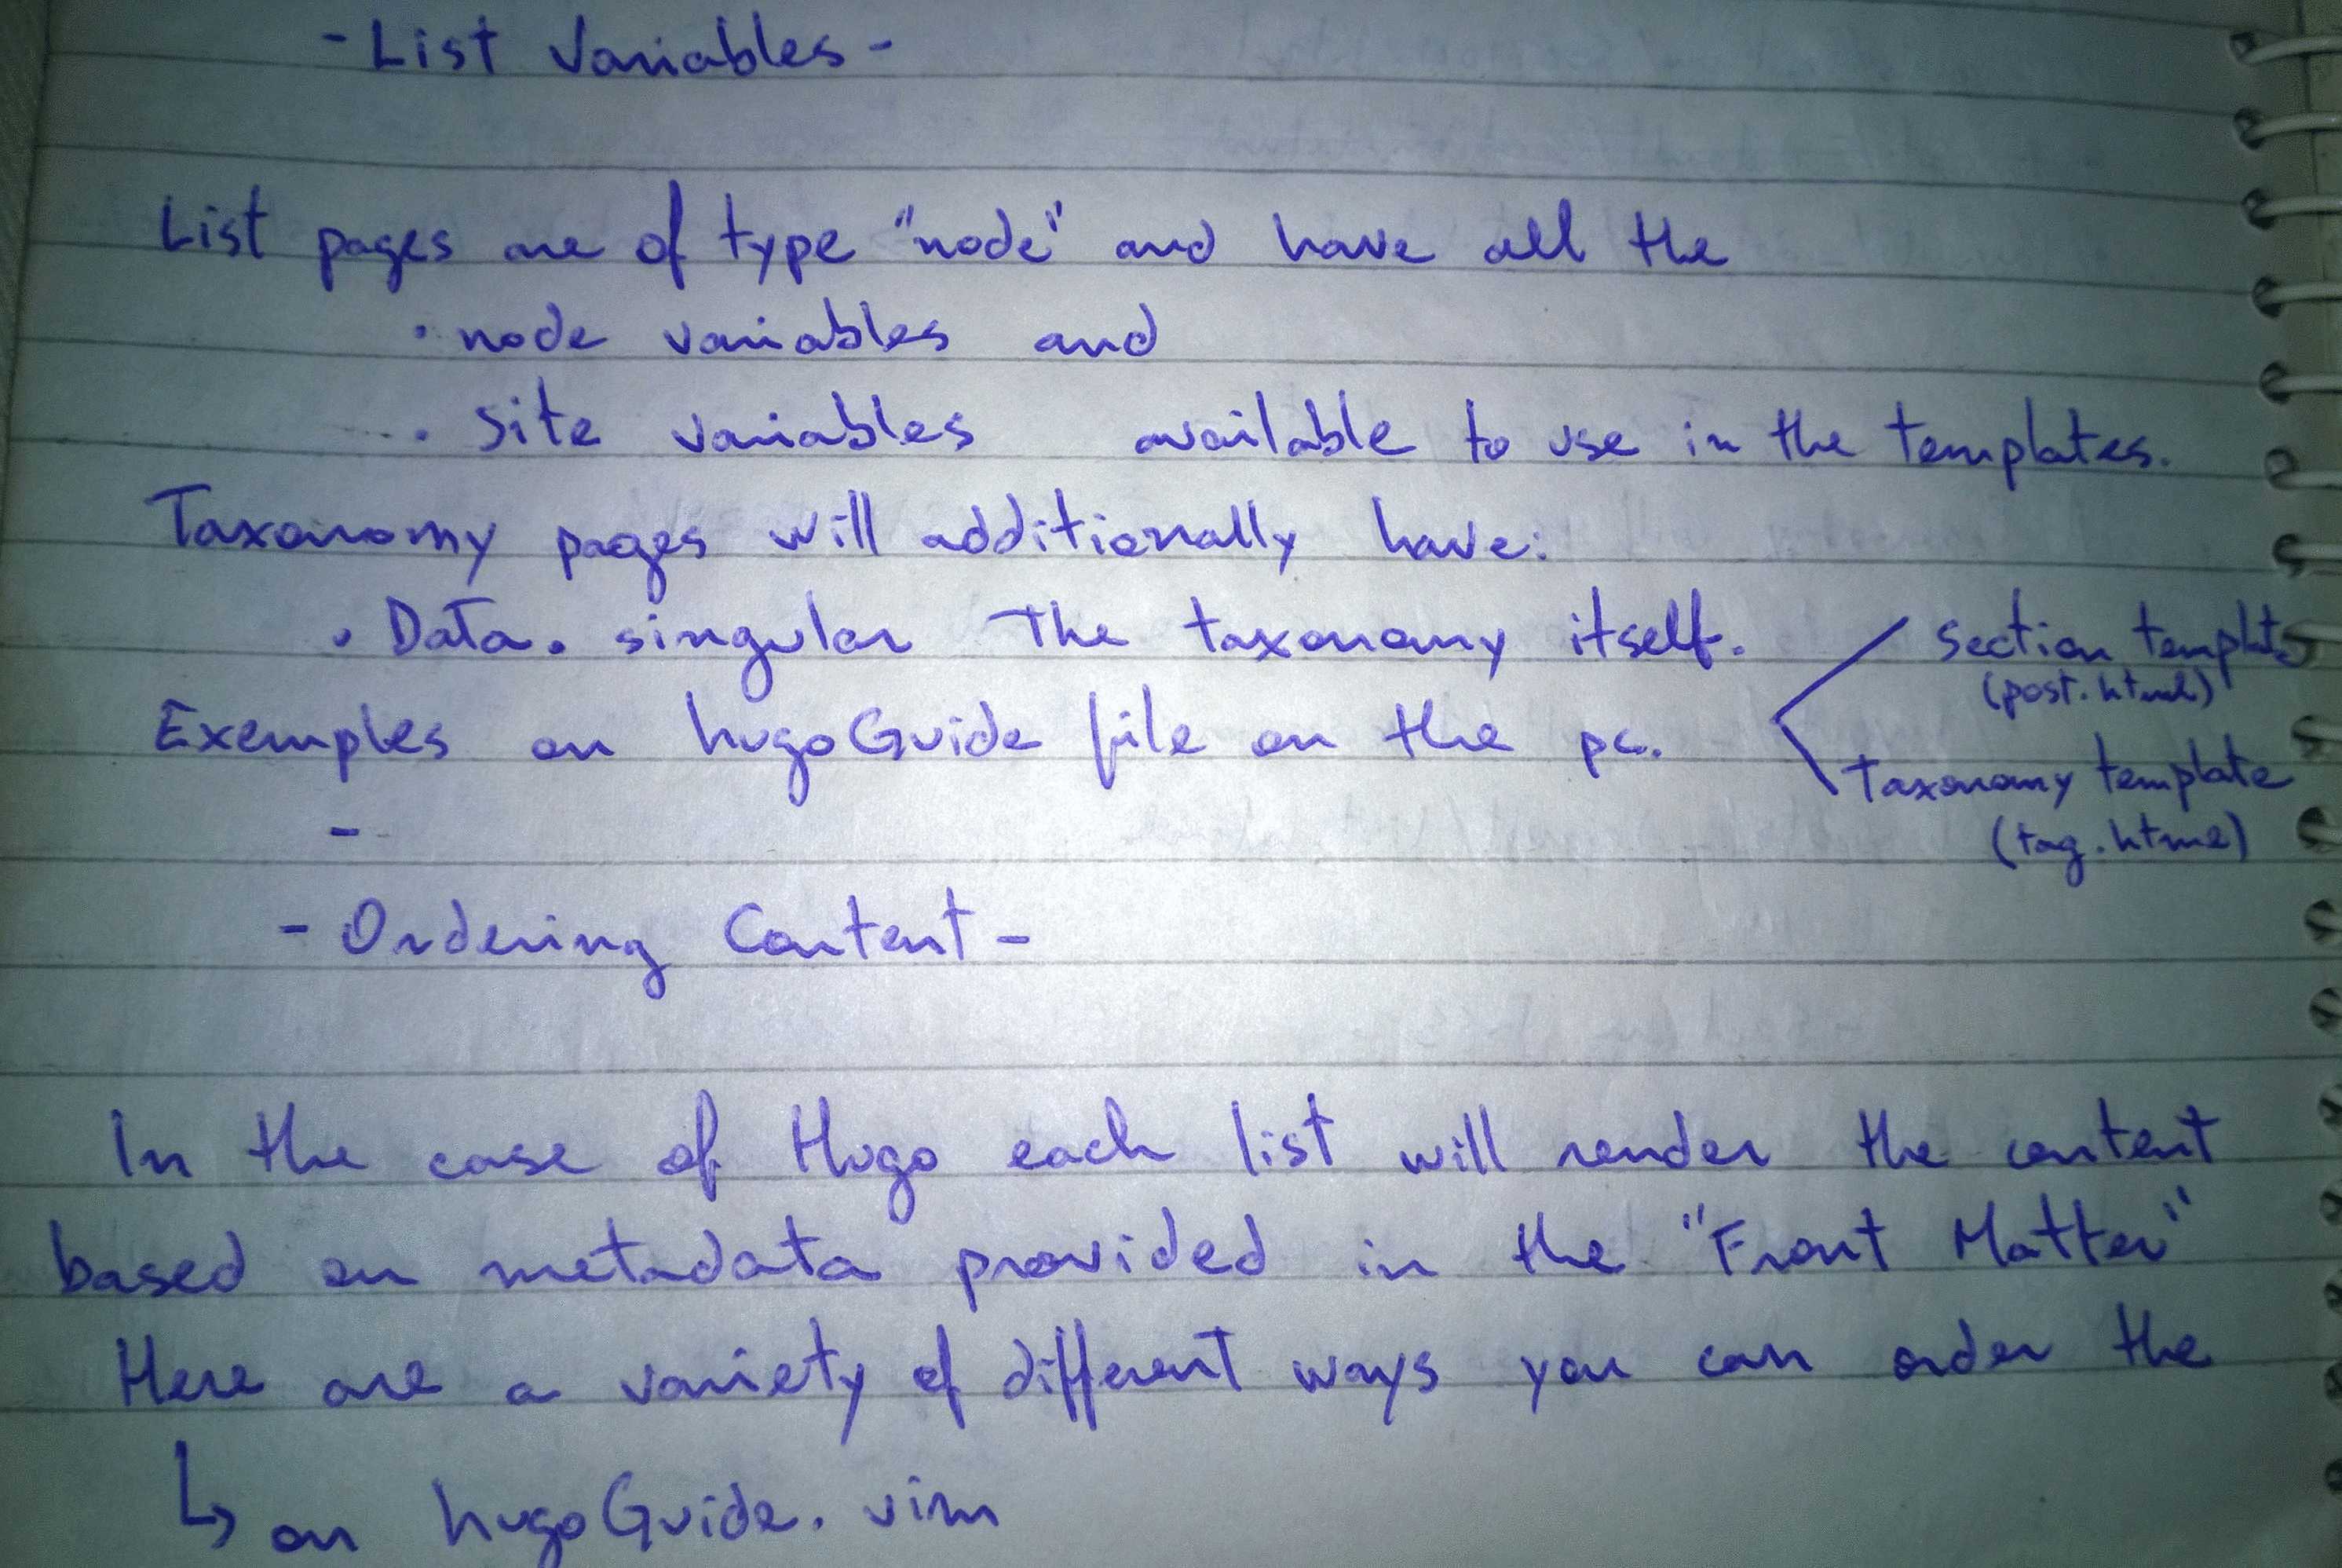 - List Variables -
List pages are of type "node" and have all the
· node variables and
· Site variables available to use in the templates.
Taxonomy pages will additionally have:
· Data. singular The taxonomy itself.
Exemples on hugoGuide file on the pc.
section template
(post.html)
taxonomy template
(tag.html)
-
- Ordering Content -
In the case of Hugo each list will render the content
based on metadata provided in the "Front Matter"
Here are a variety of different ways you can order the
↳ on hugoGuide. vim